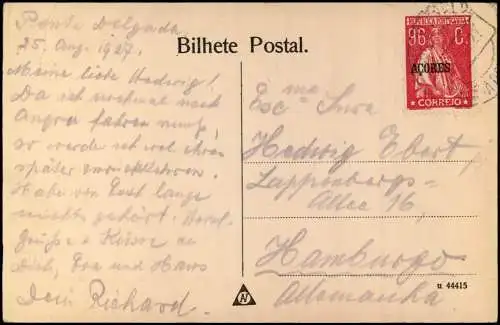 Ponta Delgada,
25. Aug. 1927.
Meine liebe Hedwig!
Da ich nochmal nach
Angra fahren muß,
so werde ich etwas
später zurückkehren.
Habe von Euch lange
nichts gehört. Herzl.
Grüße & Küsse an
Dich, und Hans
Dein Richard.
Bilhete Postal.
REPUBLICA PORTUGUESA
96 C.
AÇORES
CORREIO
Exc ma Snra
Hedwig Ebert
Lappenbergs-
Allee 16,
Hamburgo
Allemanha
u 44415